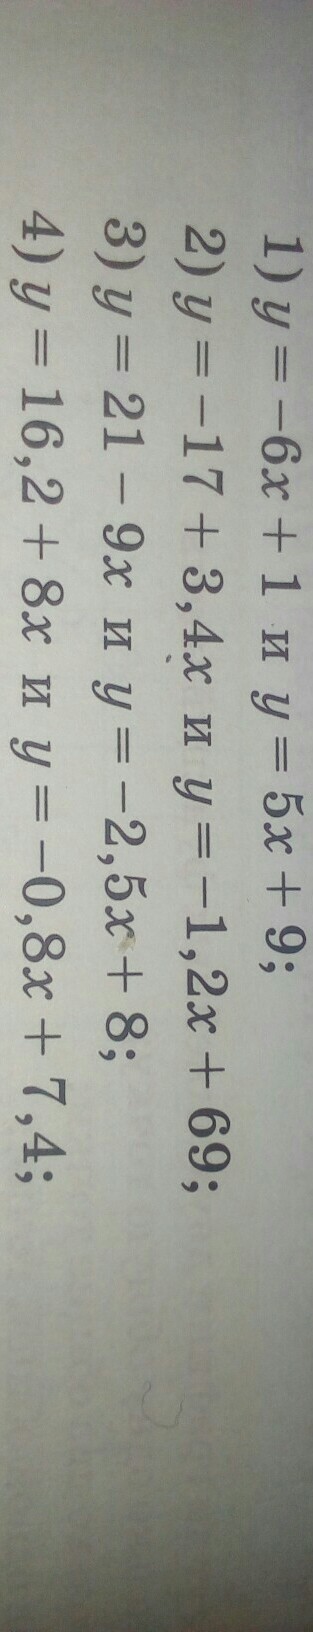 1) y = −6x + 1 и y = 5x + 9;
2) y = −17 + 3,4x и y = −1,2x + 69;
3) y = 21 − 9x и y = −2,5x + 8;
4) y = 16,2 + 8x и y = −0,8x + 7,4;